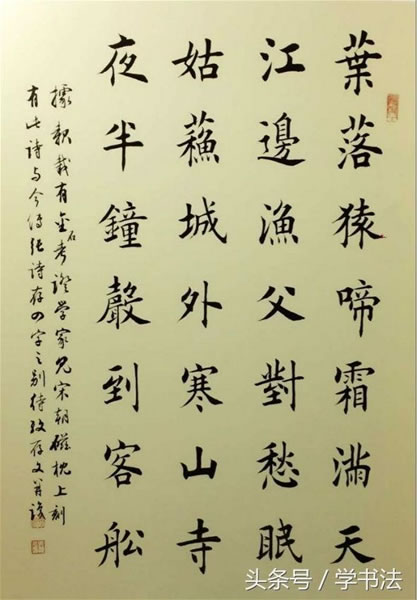 葉落猿啼霜滿天
江邊漁父對愁眠
姑蘇城外寒山寺
夜半鐘聲到客船
據報載有金石考證學家見宋朝磁枕上刻
有此詩与今傳張詩存四字之别待攷存文
头条号／学书法